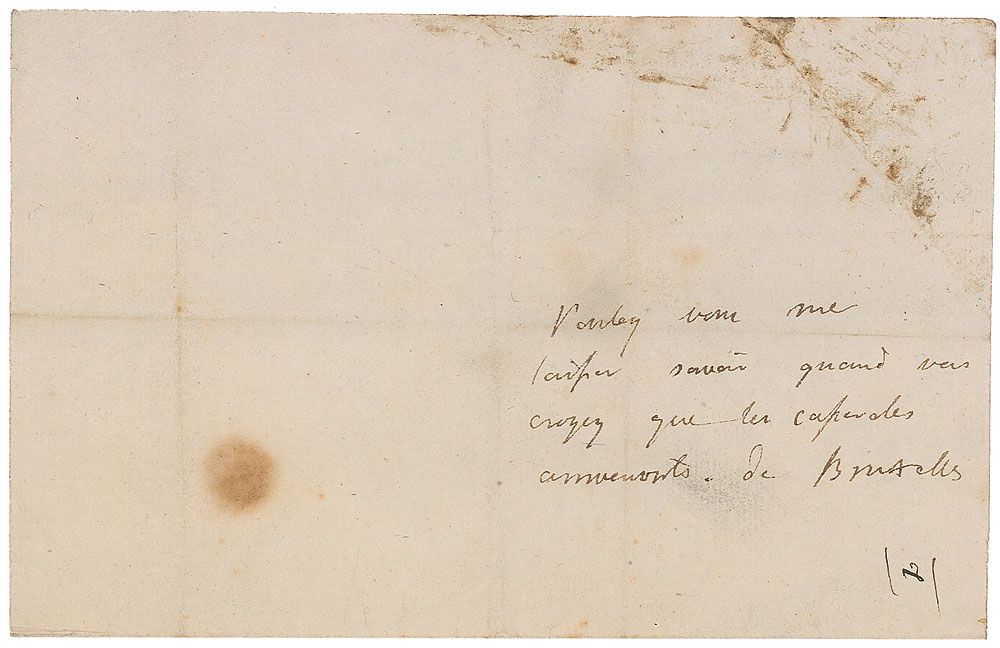 Vouley vous me
laisser savoir quand vous
croyey que les casseroles
arriveronts. de Bruxelles